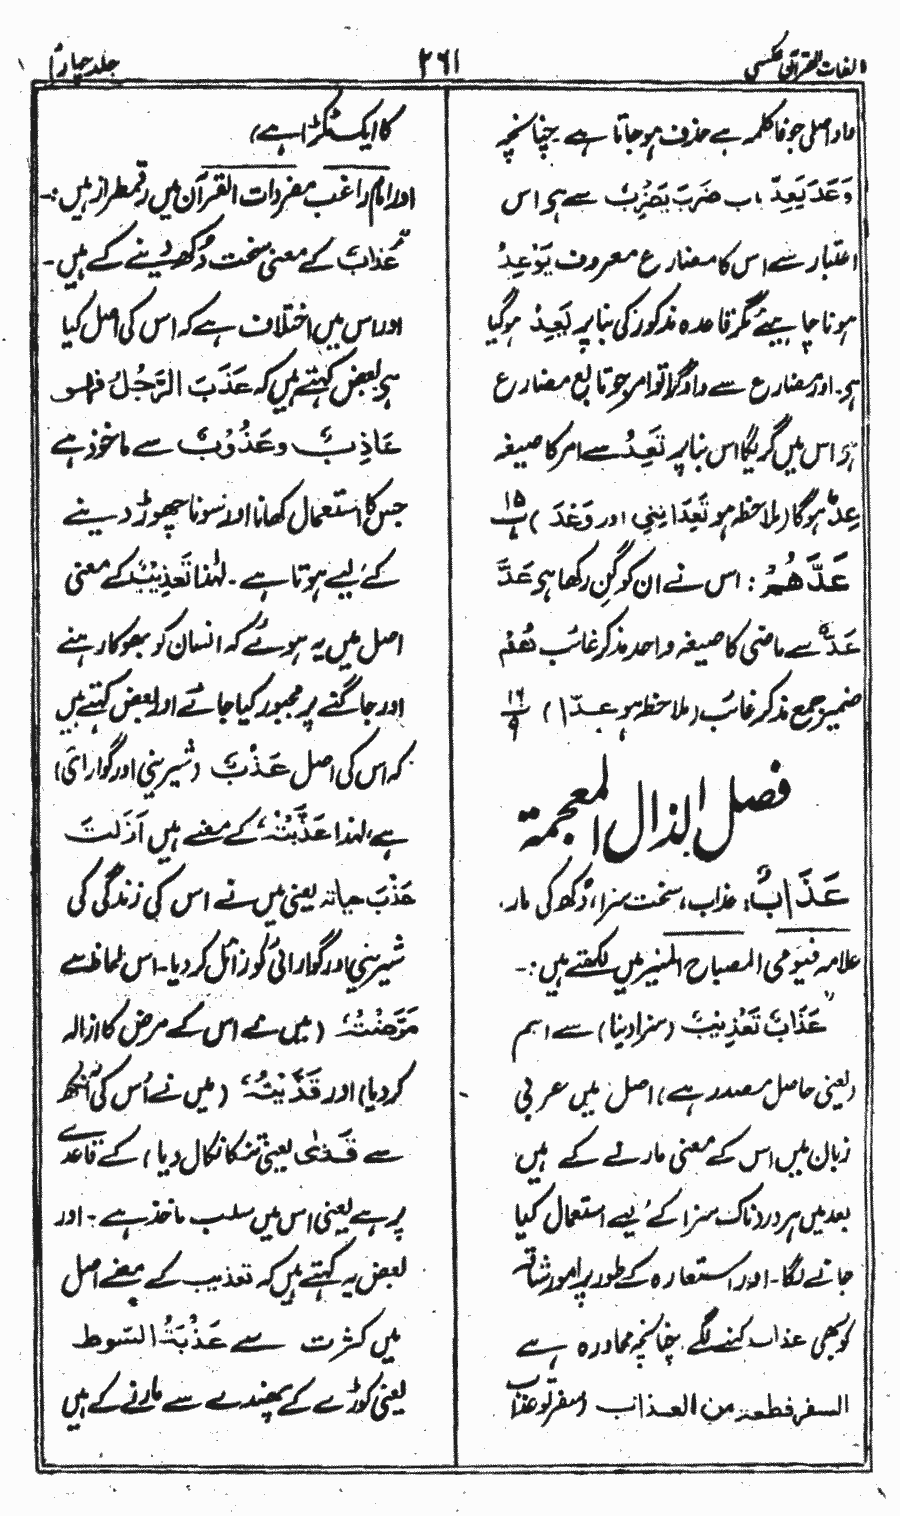 لغات القرآن عکسی
۲۶۱
جلد چہارم
واو اصلی جو فا کلمہ ہے حذف ہو جاتا ہے۔ چنانچہ
وَعَدَ يَعِدُ باب ضَرَبَ يَضْرِبُ سے ہی اس
اعتبار سے اس کا مضارع معروف يَوْعِدُ
ہونا چاہیے مگر قاعدہ مذکور کی بنا پر يَعِدُ ہو گیا
ہی۔ اور مضارع سے واو گرا تو امر جو تابع مضارع
ہی اس میں گر یگا اس بنا پر تَعِدُ سے امر کا صیغہ
عِدْ ہوگا (ملاحظہ ہو تَعِدَانِنِي اور وَعَدَ) ۱۵
عَدَّهُمْ : اس نے ان کو گن رکھا ہی عَدَّ
عَدٌّ سے ماضی کا صیغہ واحد مذکر غائب هُمْ
ضمیر جمع مذکر غائب (ملاحظہ ہو عدّا) ۱۶ ۹
فصل الذال المعجمة
عَذَابٌ: عذاب، سخت سزا، دُکھ کی مار،
علامہ فیومی المصباح المنیر میں لکھتے ہیں:-
عَذَابٌ تَعْذِيْبٌ (سزا دینا) سے اسم
(یعنی حاصل مصدر ہے) اصل میں عربی
زبان میں اس کے معنی مارنے کے ہیں
بعد میں ہر دردناک سزا کے لیے استعمال کیا
جانے لگا۔ اور استعارہ کے طور پر امور شاقہ
کو بھی عذاب کہنے لگے چنانچہ محاورہ ہے
السفر قطعة من العذاب (سفر تو عذاب
کا ایک ٹکڑا ہے)
اور امام راغب مفردات القرآن میں رقمطراز ہیں:-
عُذاب کے معنی سخت دُکھ دینے کے ہیں۔
اور اس میں اختلاف ہے کہ اس کی اصل کیا
ہی بعض کہتے ہیں کہ عَذَبَ الرَّجُلُ فهو
عَاذِبٌ وعَذُوْبٌ سے ماخوذ ہے
جس کا استعمال کھانا اور سونا چھوڑ دینے
کے لیے ہوتا ہے۔ لہٰذا تَعْذِيْبٌ کے معنی
اصل میں یہ ہوئے کہ انسان کو بھوکا رہنے
اور جاگنے پر مجبور کیا جائے اور بعض کہتے ہیں
کہ اس کی اصل عَذْبٌ (شیرینی اور گوارائی)
ہے، لہٰذا عَذَّبْتُهٗ کے معنے ہیں اَزَلْتُ
عَذْبَ حياته یعنی میں نے اس کی زندگی کی
شیرینی اور گوارائی کو زائل کر دیا۔ اس لحاظ سے
مَرَّضْتُهٗ (میں نے اس کے مرض کا ازالہ
کر دیا) اور قَذَّيْتُهٗ (میں نے اُس کی آنکھ
سے قَذٰی یعنی تنکا نکال دیا) کے قاعدے
پر ہے یعنی اس میں سلب ماخذ ہے۔ اور
بعض یہ کہتے ہیں کہ تعذیب کے معنے اصل
میں کثرت سے عَذَبَةُ السَّوط
یعنی کوڑے کے پھندے سے مارنے کے ہیں